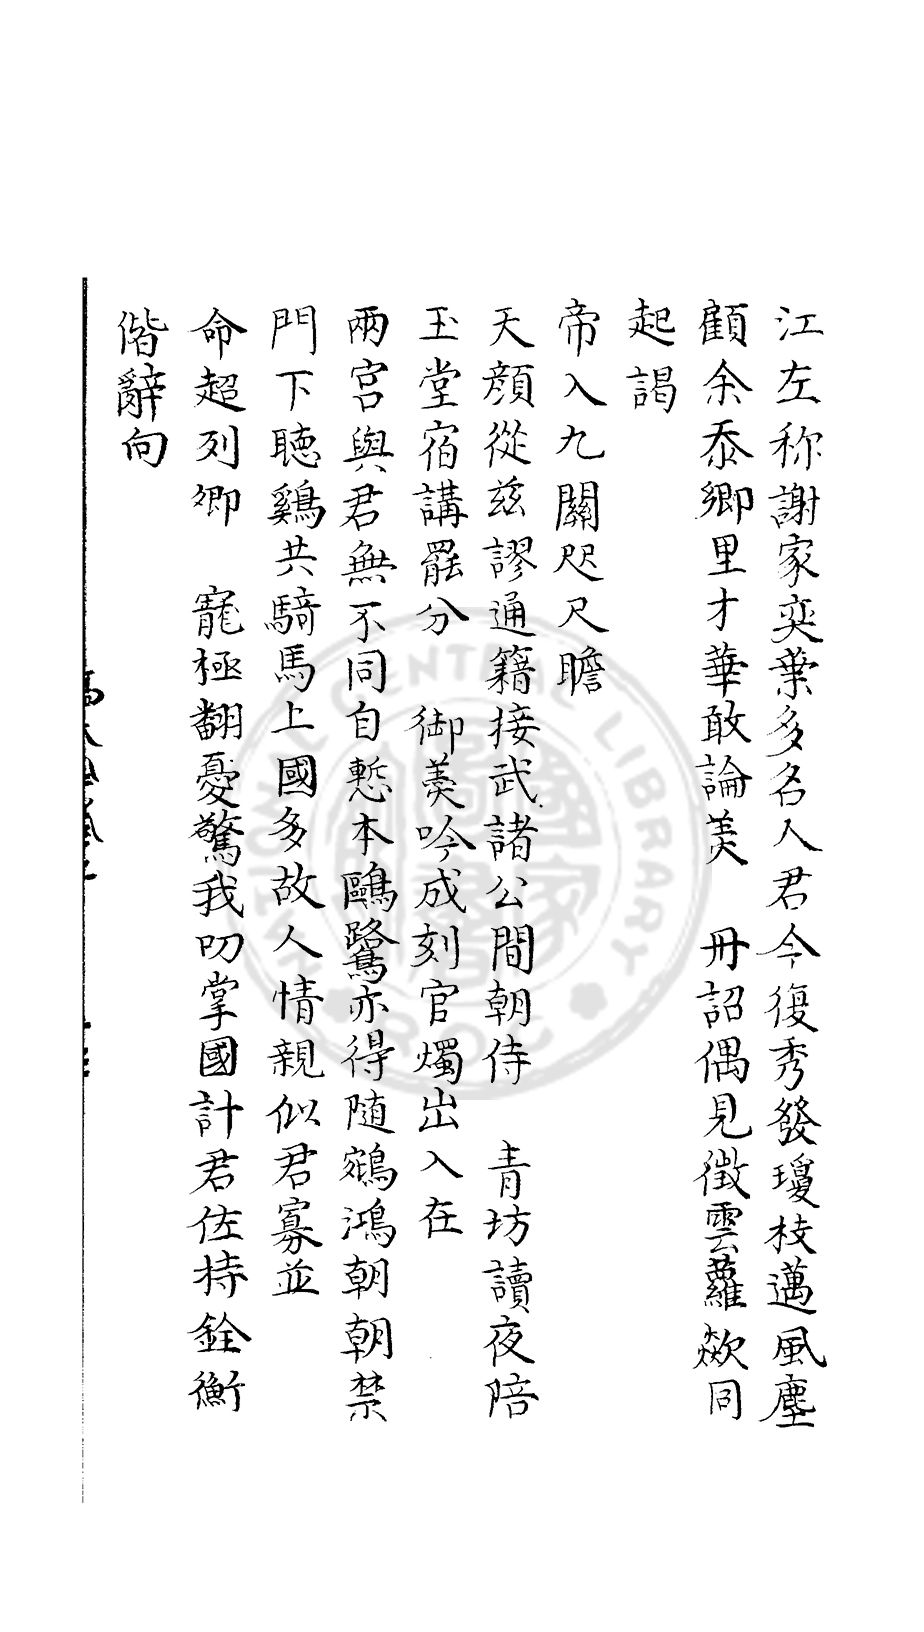 江左称謝家奕葉多名人君今復秀發瓊枝邁風塵
顧余忝鄉里才華敢論美　冊詔偶見徵雲蘿歘同
起謁
帝入九關咫尺瞻
天顏從茲謬通籍接武諸公間朝侍　青坊讀夜陪
玉堂宿講罷分　御羮吟成刻官燭出入在
兩宮與君無不同自慙本鷗鷺亦得随鵷鴻朝朝禁
門下聴鷄共騎馬上國多故人情親似君寡並
命超列卿　寵極翻憂驚我叨掌國計君佐持銓衡
偕辭向